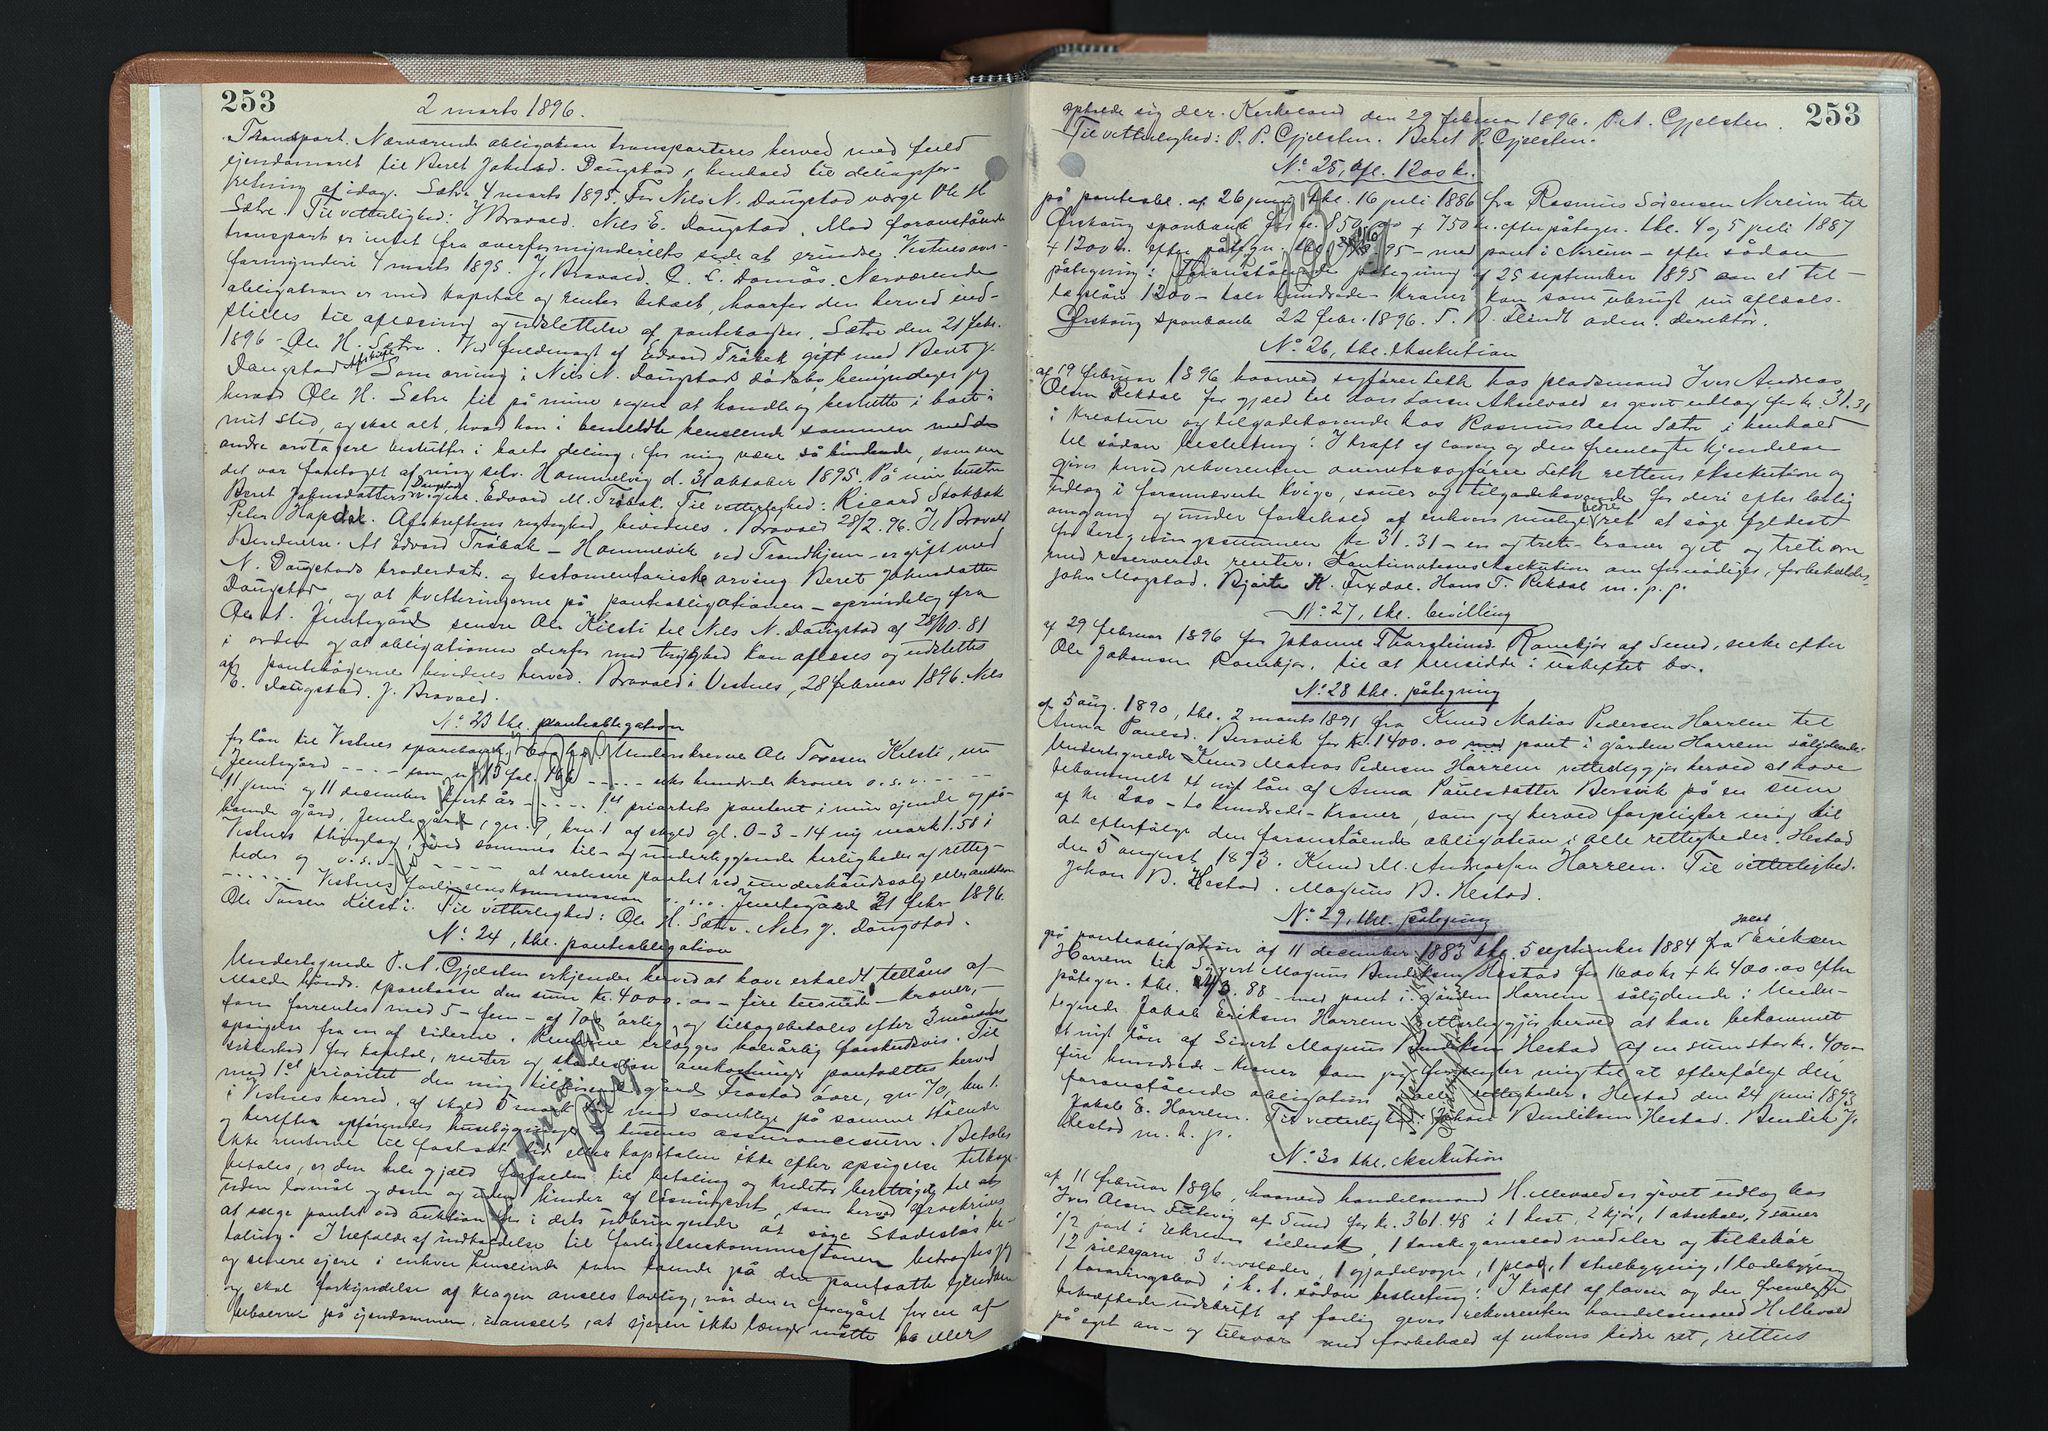 253
2 marts 1896.
Transport. Nærværende obligation transporteres herved med fuld
ejendomsret til Beret Johnsd. Daugstad, i henhold til delingsfor-
retning af idag. Sætre 4 marts 1895. For Nils N. Daugstad værge Ole H
Sætre. Til vitterlighed: J Bravold. Nils E. Daugstad. Mod foranstående
transport er intet fra overformynderiets side at erindre. Vestnes over-
formynderi 4 marts 1895. J. Bravold. O. L. Damås. Nærværende
obligation er med kapital og renter betalt, hvorfor den herved ind-
stilles til aflæsning og udslettelse af pantebogen. Sætre den 21 febr.
1896 - Ole H. Sætre. Ved fuldmagt af Edvard Tråbak gift med Beret J.
Daugstad. Afskrift Som arving i Nils N. Daugstads dødsbo bemyndiger jeg
herved Ole H. Sætre til på mine vegne at handle og beslutte i boet i
mit sted, og skal alt, hvad han i bemeldte henseende sammen med de
andre arvtagere beslutter i boets deling, for mig være så bindende, som om
det var foretaget af mig selv. Hommelvig d. 31 oktober 1895. På min hustru
Beret Johnsdatters Daugstad vegne. Edvard M. Tråbak. Til vitterlighed: Ricard Stokbak
Peter Hapdal. Afskriftens rigtighed bevidnes. Bravold 28/2. 96. J. Bravold
At Edvard Tråbak - Hommelvik ved Trondhjem - er gift med
N. Daugstads broderdatr. og testamentariske arving Beret Johnsdatter
Daugstad, og at kvitteringerne på panteobligationen - oprindelig fra
Ole A. Jemtegård senere Ole Kilsti til Nils N. Daugstad af 28/10. 81
i orden og at obligationen derfor med tryghed kan aflæses og udslettes
af pantebøgerne bevidnes herved. Bravold i Vestnes, 28 februar 1896. Nils
E. Daugstad. J. Bravold.
No. 23 thl. panteobligation
for lån til Vestnes sparebank. Underskrevne Ole Toresen Kilsti, nu
Jemtegård - - - - som - - - - seks hundrede kroner o.s.v. - - - - -
11 juni og 11 december hvert år - - - - 1st prioritets panteret i min ejende og på-
boende gård, Jemtegård, gn. 9, brn. 1 af skyld gl. 0-3-14 ny mark 1.58 i
Vestnes thinglag, med sammes til- og underliggende herligheder og rettig-
heder og o.s.v. - - - - at realisere pantet ved underhåndssalg eller auktion
- - - - - - Vestnes forligelseskommission . . . . . Jemtegård 21 febr 1896.
Ole Torsen Kilsti. Til vitterlighed: Ole H. Sætre. Nils J. Daugstad.
No. 24, thl. panteobligation
Undertegnede P. A. Gjelsten erkjender herved at have erholdt tillåns af
Molde håndv. sparekasse den sum kr. 4000.00 - fire tusinde - kroner, -
som forrentes med 5 - fem - af 100 årlig og tilbagebetales efter 3 måneders
opsigelse fra en af siderne. Renterne erlægges halvårlig forskudsvis. Til
sikkerhed for kapital, renter og skadesløs omkostninger pantsættes herved
med 1st prioritet den mig tilhørende gård Frostad øvre, gn. 70, bn. 1.
i Vestnes herred, af skyld 5 mark med samtlige på samme stående
og herefter opførendes husebygninger husenes assurancesum. Betales
ikke renterne til fastsat tid eller kapitalen ikke efter opsigelse tilbage-
betales, er den hele gjæld forfalden til betaling og kreditor berettiget til at
uden lovmål og dom og uden hinder af løsningsret, som herved proskrives
at sælge pantet ved auktion for i dets udbringende at søge skadesløs be-
taling. I tilfælde af indkaldelse til forligelseskommissionen betragtes jeg
og senere ejere i enhver henseende som boende på den pantsatte ejendom
og skal forkyndelse af klagen ansees lovlig, når den er foregået for en af
beboerne på ejendommen, uanseet, at ejeren ikke længer måtte bo eller
253
opholde sig der. Kirkeland den 29 februar 1896. P. A. Gjelsten.
Til vitterlighed: P. P. Gjelsten. Beret P. Gjelsten.
No. 25, afl. 1200 k.
på panteobl. af 26 juni thl. 16 juli 1886 fra Rasmus Sørensen Nereim til
Ørskoug sparebank for kr. 850.00 + 750 kr. efter påtegn. thl. 4 og 5 juli 1887
+ 1200 kr. efter påtegn. thl. 95 - med pant i Nereim - efter sådan
påtegning: Foranstående påtegning af 25 september 1895 om et til-
lægslån 1200 - tolv hundrede - kroner kan som ubrugt nu aflæses.
Ørskoug sparebank 22 febr. 1896. T. B. Flindt adm. direktør.
No. 26, thl. eksekution
af 19 februar 1896 hvorved sagfører Leth hos pladsmand Iver Andreas
Olsen Rekdal for gjæld til Lars Larsen Akselvold er givet udlæg for kr. 31.31
i kreature og tilgodehavende hos Rasmus Olsen Sætre i henhold
til sådan beslutning: I kraft af loven og den fremlagte kjendelse
gives herved rekvirenten overretssagfører Leth rettens eksekution og
udlæg i forannævnte kvige, sauer og tilgodehavende for deri efter lovlig
omgang og under forbehold af enhvers mulige bedre ret at søge fyldest
for beregningssummen kr 31.31 - en og treti kroner og et og treti øre
med reserverede renter. Kontinuationseksekution om fornødiges, forbeholdes.
John Mogstad. Bjarte K. Fixdal. Hans T. Rekdal m. p. p.
No. 27, thl. bevilling
af 29 februar 1896 for Johanne Thorsteinsd. Romkjør af Sund, enke efter
Ole Johansen Romkjør, til at hensidde i uskiftet bo.
No. 28 thl. påtegning
af 5 aug. 1890, thl. 2 marts 1891 fra Knud Matias Pedersen Harrem til
Anna Paulsd. Bersvik for kr. 1400.00 med pant i gården Harrem sålydende:
Undertegnede Knud Matias Pedersen Harrem vitterliggjør herved at have
bekommet et nyt lån af Anna Paulsdatter Bersvik på en sum
af kr 200 - to hundrede - kroner, som jeg herved forpligter mig til
at efterfølge den foranstående obligation i alle rettigheder. Hestad
den 5 august 1893. Knud M. Andreasen Harrem. Til vitterlighed.
Johan B. Hestad. Magnus B. Hestad.
No. 29, thl. påtegning
på panteobligation af 11 december 1883 thl. 5 september 1884 fra Jakob Eriksen
Harrem til Sivert Magnus Bendiksen Hestad for 1600 kr + kr 400.00 efter
påtegn. thl. 88 - med pant i gården Harrem - sålydende: Under-
tegnede Jakob Eriksen Harrem vitterliggjør herved at have bekommet
et nyt lån af Sivert Magnus Bendiksen Hestad af en sum stor kr. 400 -
fire hundrede - kroner som jeg forpligter mig til at efterfølge den
foranstående obligation i alle rettigheder. Hestad den 24 juni 1893
Jakob E. Harrem. Til vitterlighed: Johan Bendiksen Hestad. Bendik J.
Hestad m. h. p.
No. 30 thl. eksekution
af 11 februar 1896, hvorved handelsmand H. Mevold er givet udlæg hos
Iver Olsen Fulvig af Sund for kr. 361.48 i 1 hest, 2 kjør, 1 oksekalv, 7 sauer
1/2 part i sildenot, 1 torskegarnslod med iler og tilbehør
12 sildegarn 3 1 gjødelvogn, 1 plog, 1 stuebygning, 1 ladebygning
1 i h. t. sådan beslutning: I kraft af loven og den fremlagte
bekræftede udskrift af forlig gives rekvirenten handelsmand H. Mevold
på eget an- og tilsvar med forbehold af enhvers bedre ret, rettens